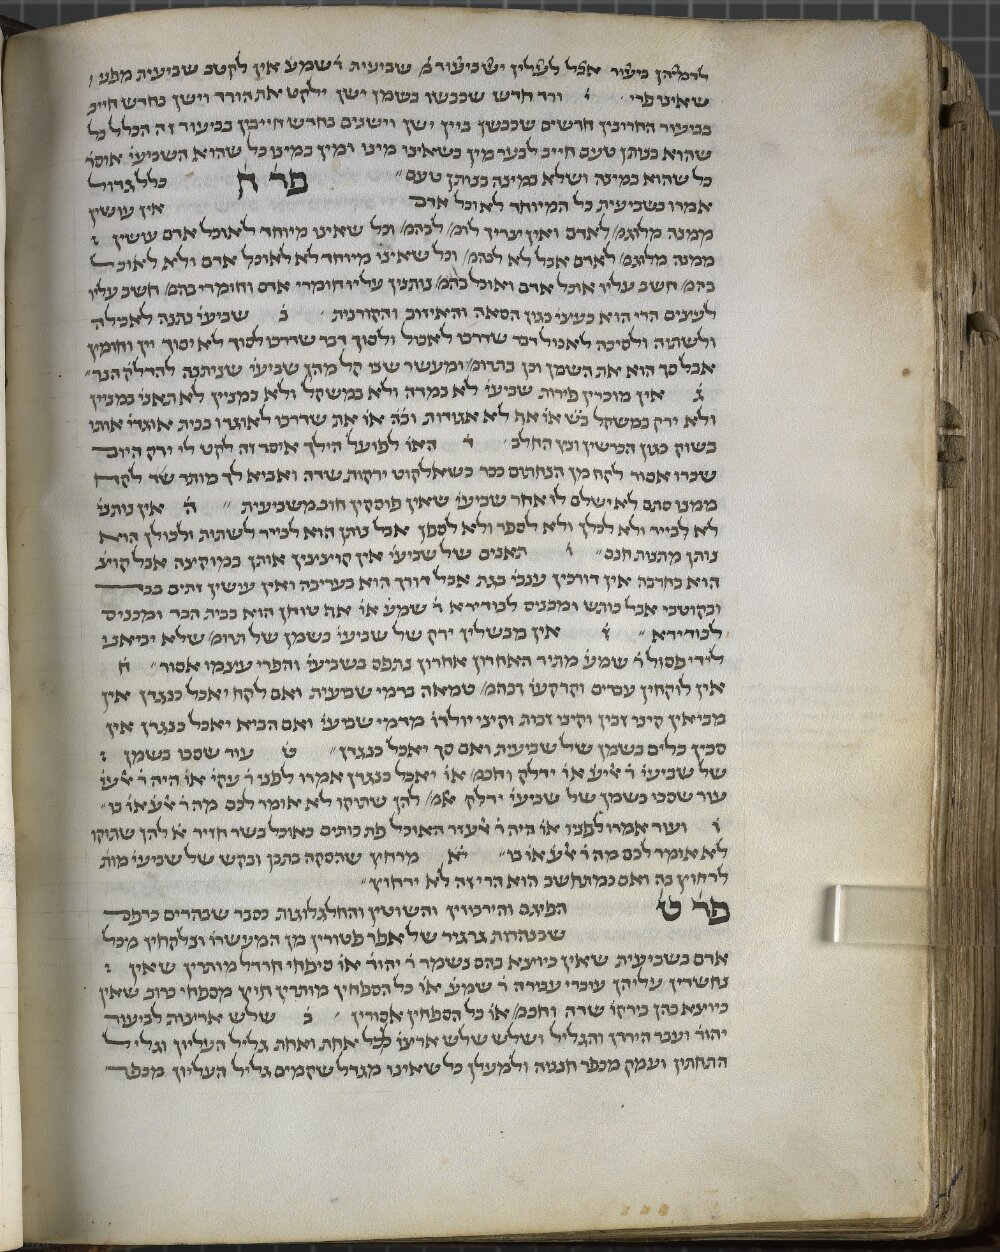 לדמיהן ביעור אבל לעלין יש ביעור ב שביעית ר שמע אין לקטב שביעית מפני
שאינו פרי ו ורד חדש שכבשו בשמן ישן ילקט את הורד וישן בחדש חייב
בביעור החרובין חדשים שכבשן ביין ישן וישנים בחדש חייבין בביעור זה הכלל כל
שהוא בנותן טעם חייב לבער מין בשאינו מינו ומין במינו כל שהוא השביעי אוסר
כל שהוא במינה ושלא במינה בנותן טעם פר ח כלל גדול
אמרו בשביעית כל המיוחד לאוכל אדם אין עושין
ממנה מלוגמ לאדם ואין צריך לומ לבהמ וכל שאינו מיוחד לאוכל אדם עושין
ממנה מלוגמ לאדם אבל לא לבהמ וכל שאינו מיוחד לא לאוכל אדם ולא לאוכל
בהמ חשב עליו אוכל אדם ואוכל בהמ נותנין עליו חומרי אדם וחומרי בהמ חשב עליו
לעצים הרי הוא כעצי כגון הסאה והאיזוב והקורנית ב שביעי נתנה לאכילה
ולשתיה ולסיכה לאכול דבר שדרכו לאכול ולסוך דבר שדרכו לסוך לא יסוך יין וחומץ
אבל סך הוא את השמן וכן בתרומ ומעשר שני קל מהן שביעי שניתנה להדלק הנר
ג אין מוכרין פירות שביעי לא במדה ולא במשקל ולא במניין לא תאני במניין
ולא ירק במשקל בש או אף לא אגודות ובה או את שדרכו לאוגדו בבית אוגדו אותו
בשוק כגון הכרשין ונץ החלב ד האו לפועל הילך איסר זה לקט לי ירק היום
שכרו אסור לקח מן הנחתום ככר כשאלקוט ירקות שדה ואביא לך מותר
ממנו סתם לא ישלם לו אחר שביעי שאין פוסקין חוב משביעית ה אין נותני
לא לבייר ולא לבלן ולא לספר ולא לספן אבל נותן הוא לבייר לשתות ולכולן הוא
נותן מתנות חנם ו תאנים של שביעי אין קוצצין אותן במוקצה אבל קוצצ
הוא בחרבה אין דורכין ענבי בגת אבל דורך הוא בעריבה ואין עושין זתים בבד
ובקוטבי אבל כותש ומכניס לבודידא ר שמע או אף טוחן הוא בבית הבד ומכניס
לבודידא ז אין מבשלין ירק של שביעי בשמן של תרומ שלא יביאנו
לידי פסול ר שמע מתיר האחרון אחרון נתפס בשביעי והפרי עצמו אסור ח
אין לוקחין עבדים וקרקעו ובהמ טמאה בדמי שביעית ואם לקח יאכל כנגדן אין
מביאין קיני זבין וקיני זבות וקיני יולדו מדמי שביעי ואם הביא יאכל כנגדן אין
סכין כלים בשמן של שביעית ואם סך יאכל כנגדן ט עור שסכו בשמן
של שביעי ר אליע או ידלק וחכמ או יאכל כנגדן אמרו לפני ר עקי או היה ר אליע
עור שסכו בשמן של שביעי ידלק אמ להן שתוקו לא אומר לכם מה ר אליע או בו
י ועוד אמרו לפניו או היה ר אליעזר האוכל פת כותים כאוכל בשר חזיר א להן שתוקו
לא אומר לכם מה ר אליע או בו יא מרחץ שהסקה בתבן ובקש של שביעי מות
לרחוץ בה ואם במתחשב הוא הרי זה לא ירחוץ
פר ט הפיגם והירבוזין והשוטין והחלגלוגות כסבר שבהרים כרפס
שבנהרות גרגיר של אפר פטורין מן המעשרו ונלקחין מכל
אדם בשביעית שאין כיוצא בהם נשמר ר יהוד או סיפחי חרדל מותרין שאין
נחשדין עליהן עוברי עבירה ר שמע או כל הספחין מותרין חוץ מספחי כרוב שאין
כיוצא בהן בירקו שדה וחכמ או כל הספחין אסורין ב שלש ארצות לביעור
יהוד ועבר הירדן והגליל ושלש שלש ארצו לכל אחת ואחת גליל העליון וגליל
התחתון ועמק מכפר חנניה ולמעלן כל שאינו מגדל שקמים גליל העליון מכפר